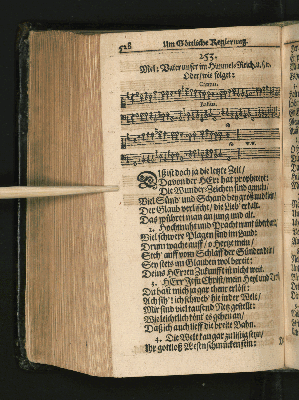 528 Um Göttliche Regierung.
253.
Mel: Vater unser im Himmelreich, u.
Oder, wie folget:
Cantus.
Bassus.
ISt doch ja die letzte Zeit/
Davon der HErr hat
Die Wunder-Zeichen sind
Viel Sünd' und Schand
Der Glaub verlöscht/ die Lieb' erkalt.
Das spühret man an jung und alt.
2. Hochmuht und Pracht nimt überhand
Viel schwere Plagen sind im Land:
Drum wache auff/ o Hertze mein/
Steh' auff vom Schlaff der
Sey stets im Glauben wol bereit:
Deins HErren Zukunfft ist nicht weit.
3. HErr JEsu Christ/ mein Heyl und
Du hast mich ja gar theur erlöst:
Ach sih'! ich schweb' hie in der Welt/
Mir sind viel tausend Netz gestellt:
Wie leichtlich könt' es gehen an/
Daß ich auch lieff die breite Bahn.
4. Die Welt kan gar zu listig seyn/
Ihr gottloß Wesen schmücken fein: